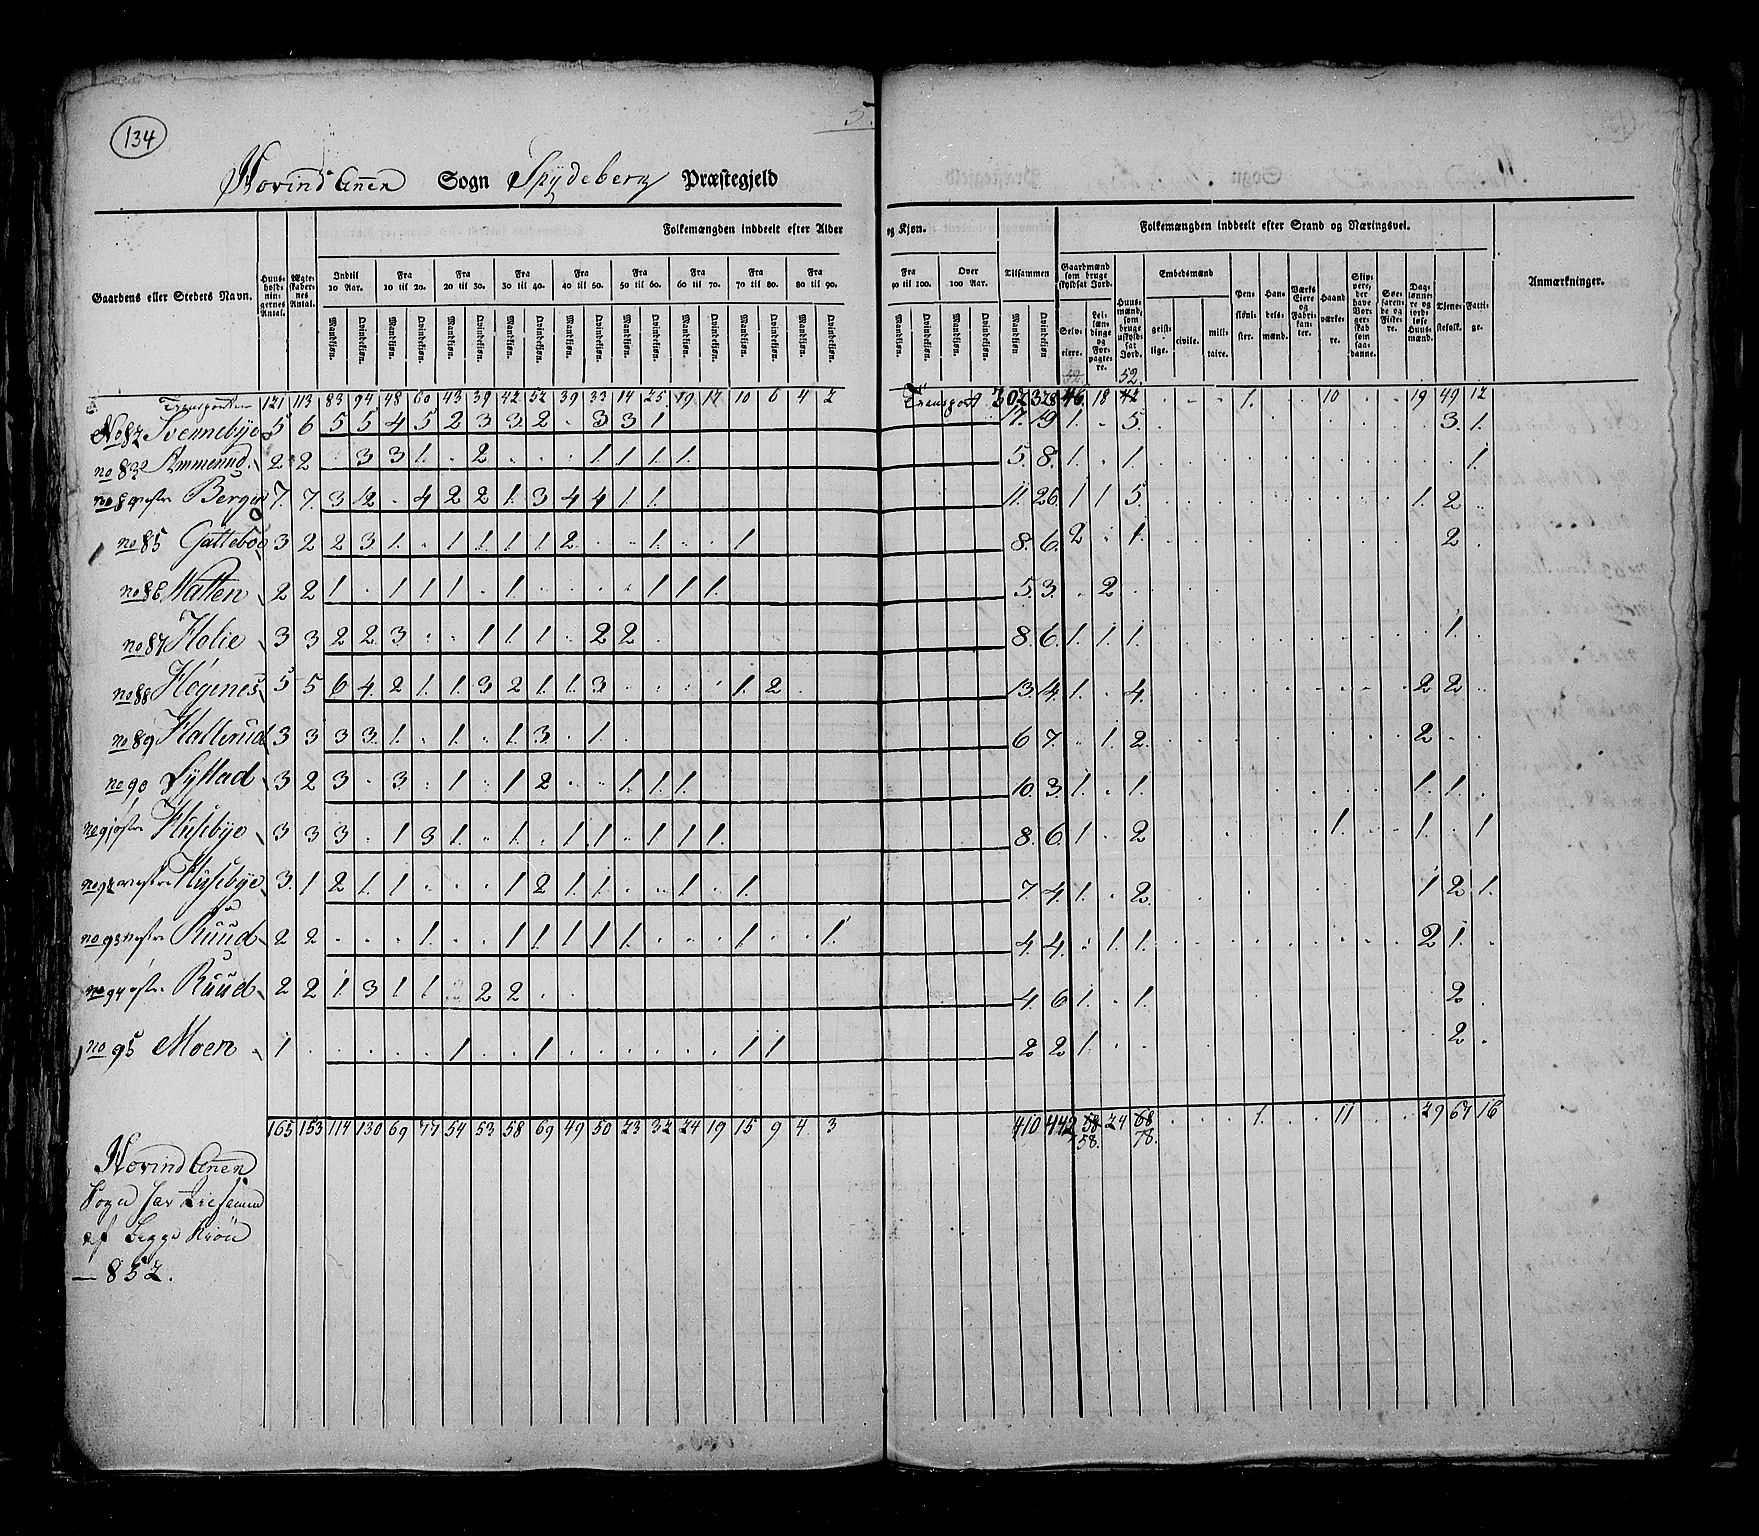 134
5.
Hovind Annex Sogn Spydeberg Præstegjeld
Folkemængden inddeelt efter Alder og Kjøn. Folkemængden inddeelt efter Stand og Næringsvei.
Gaardens eller Stedets Navn. Huusholdningernes Antal. Ægteskabernes Antal. Indtil 10 Aar. Fra 10 til 20. Fra 20 til 30. Fra 30 til 40. Fra 40 til 50. Fra 50 til 60. Fra 60 til 70. Fra 70 til 80. Fra 80 til 90. Fra 90 til 100. Over 100 Aar. Tilsammen Gaardmænd som bruge skyldsat Jord. Huusmænd, som bruge uskyldsat Jord. Embedsmænd Pensionister. Handelsmænd. Værks Eiere og Fabrikanter. Haandværkere. Skippere, der have Borgerskab som saadanne. Søefarende og Fiskere. Daglønnere og jordløse Huusmænd. Tjenestefolk. Fattige. Anmærkninger.
Mandkjøn. Qvindekjøn. Mandkjøn. Qvindekjøn. Mandkjøn. Qvindekjøn. Mandkjøn. Qvindekjøn. Mandkjøn. Qvindekjøn. Mandkjøn. Qvindekjøn. Mandkjøn. Qvindekjøn. Mandkjøn. Qvindekjøn. Mandkjøn. Qvindekjøn. Mandkjøn. Qvindekjøn. Mandkjøn. Qvindekjøn. Mandkjøn Qvindekjøn. Selveiere. Leilændinge og Forpagtere. geistlige. civile. militaire.
52. 52.
Transporten 121 113 83 94 48 60 43 39 42 52 39 33 14 25 19 17 10 6 4 2 Transport 302 328 46 18 42 . . . 1. 10 . . 19 49 12
No 82 Svennebye 5 6 5 5 4 5 2 3 3 2 . 3 3 1 17. 19 1. . 5. 3. 1.
no 83 Ammerud. 2 2 . 3 3 1. . 2 . . . 1 1 1. 1. 5. 8. 1. . 1. 1.
no 84 Bergen 7. 7. 3 12 . 4 2 2 1. 3 4 4 1. 1. 11. 26. 1 1 5. 1. 2
no 85 Gatteboe 3 2 2 3 1. . 1 1 1 1. 2 . . 1. . . 1 8. 6. 2 . 1. 2 .
no 86 Natten 2 2 1 . 1 1 1 . 1 . . . . 1 1 1. 5. 3. . 2
no 87 Holie 3 3 2 2 3 . . 1 1 1. . 2 2 . 8. 6. 1. 1. 1. 1.
no 88 Högenes 5 5 6 4 2 1. 1. 3 2 1. 1. 3 . . . . 1. 2 . 13. 4. 1. . 4. 2 2 .
no 89 3 3 3 3 1. . 1. . 1. 3 . 1. 6 7. . 1. 2. 2 . .
no 90 3 2 3 . 3 . 1. . 1 2 . . 1. 1. 1. 10. 3. 1. . 1. 1. 1. .
no 91 østre Husebye 3 3 3 . 1 3 1. . 1. . 1 1. . 1. 1. 1. 8. 6. 1. . 2 1. 1. . 1
no 92 vestre Husebye 3. 1 2 1. 1. . . . 1 2 1. 1. . . 1. . 1. 7. 4. 1. . 2. 1. 2 1.
no 93 vestre Ruud 2 2 . . . 1. . . 1 1 1 1 1. . . . 1. . . 1. 4. 4. . 1 1. 2 1. .
no 94 østre Ruud 2 2 1 3 1 1. . 2 2 . . 4. 6 1. . 1. 2 .
no 95 Moen 1. . . . . . 1. . . 1. . . . . . . 1 1. 2 2 1. 2 .
165 153 114 130 69 77 54 53 58 69 49 50 23 32 24 19 15 9 4 3 410 442 58 24 68 . . . 1. 11 . . 29 67 16
58. 78.
Hovind Annex
Sogn har tilsammen
af begge Kiön
— 852.